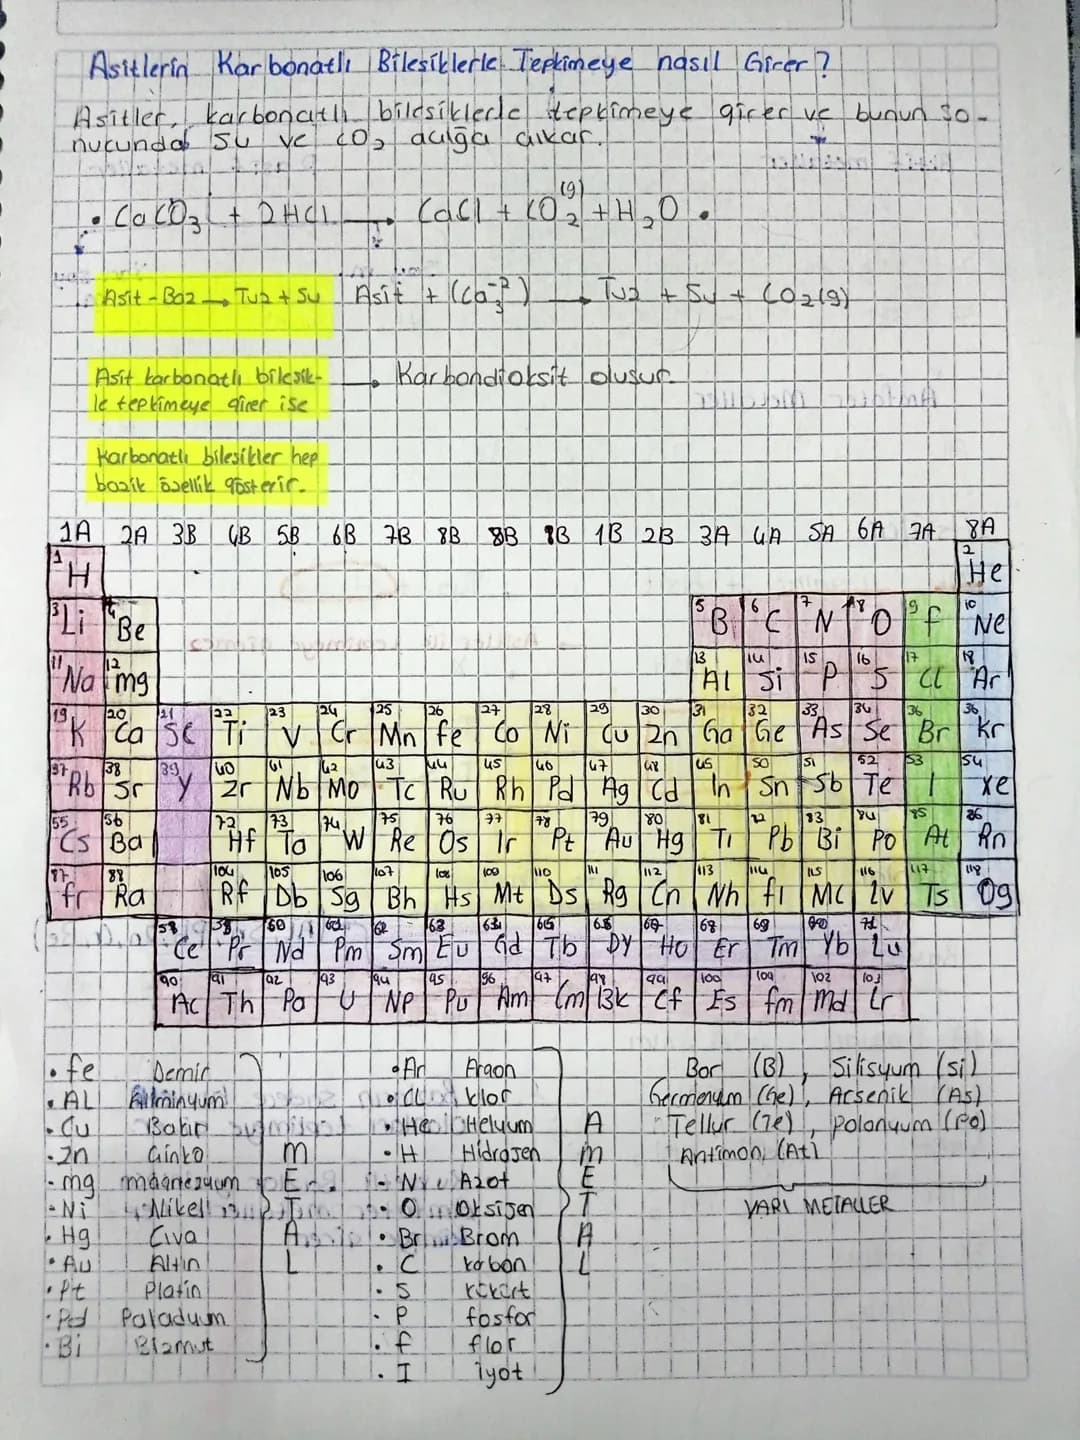 Asitlerin Karbonatlı Bileşiklerle Tepkimeye nasıl Girer?
Asitler, karbonatlı bileşiklerle tepkimeye girer ve bunun so-
nucunda su ve CO₂ açığa çıkar.
• CaCO₃ + 2HCl → CaCl + CO₂(g) + H₂O •
Asit - Baz → Tuz + Su
Asit + (CO₃⁻²) → Tuz + Su + CO₂(g)
Asit karbonatlı bileşik-
le tepkimeye girer ise
→ Karbondioksit oluşur.
Karbonatlı bileşikler hep
bazik özellik gösterir.
1A 2A 3B 4B 5B 6B 7B 8B 8B 8B 1B 2B 3A 4A 5A 6A 7A 8A
1 H 2 He
3 Li 4 Be 5 B 6 C 7 N 8 O 9 f 10 Ne
11 Na 12 mg 13 Al 14 Si 15 P 16 S 17 Cl 18 Ar
19 K 20 Ca 21 Sc 22 Ti 23 V 24 Cr 25 Mn 26 fe 27 Co 28 Ni 29 Cu 30 Zn 31 Ga 32 Ge 33 As 34 Se 36 Br 36 Kr
37 Rb 38 Sr 39 Y 40 Zr 41 Nb 42 Mo 43 Tc 44 Ru 45 Rh 46 Pd 47 Ag 48 Cd 45 In 50 Sn 51 Sb 52 Te 53 I 54 Xe
55 Cs 56 Ba 72 Hf 73 Ta 74 W 75 Re 76 Os 77 Ir 78 Pt 79 Au 80 Hg 81 Tl Pb 83 Bi 84 Po 85 At 86 Rn
87 fr 88 Ra 104 Rf 105 Db 106 Sg 107 Bh 108 Hs 109 Mt 110 Ds 111 Rg 112 Cn 113 Nh 114 fl 115 MC 116 Lv 117 Ts 118 Og
58 Ce 59 Pr 60 Nd 61 Pm 62 Sm 63 Eu Gd 65 Tb DY Ho 68 Er 69 Tm Yb 71 Lu
90 Ac 91 Th 92 Pa 93 U 94 NP 95 Pu 96 Am 97 Cm 98 Bk 99 Cf 100 Es fm 102 md 103 Lr
• fe Demir
• AL Alüminyum
• Cu Bakır
• Zn Çinko
• mg magnezyum
• Ni Nikel
• Hg Civa
• Au Altın
• Pt Platin
• Pd Paladyum
• Bi Bizmut
METAL
• Ar Argon
• CL klor
• He Helyum
• H Hidrojen
• N Azot
• O Oksijen
• Br Brom
• C karbon
• S kükürt
• P fosfor
• f flor
• I iyot
AMETAL
Bor (B), Silisyum (si)
Germenyum (Ge), Arsenik (As)
Tellur (Te), Polonyum (Po)
Antimon, (At)
YARI METALLER